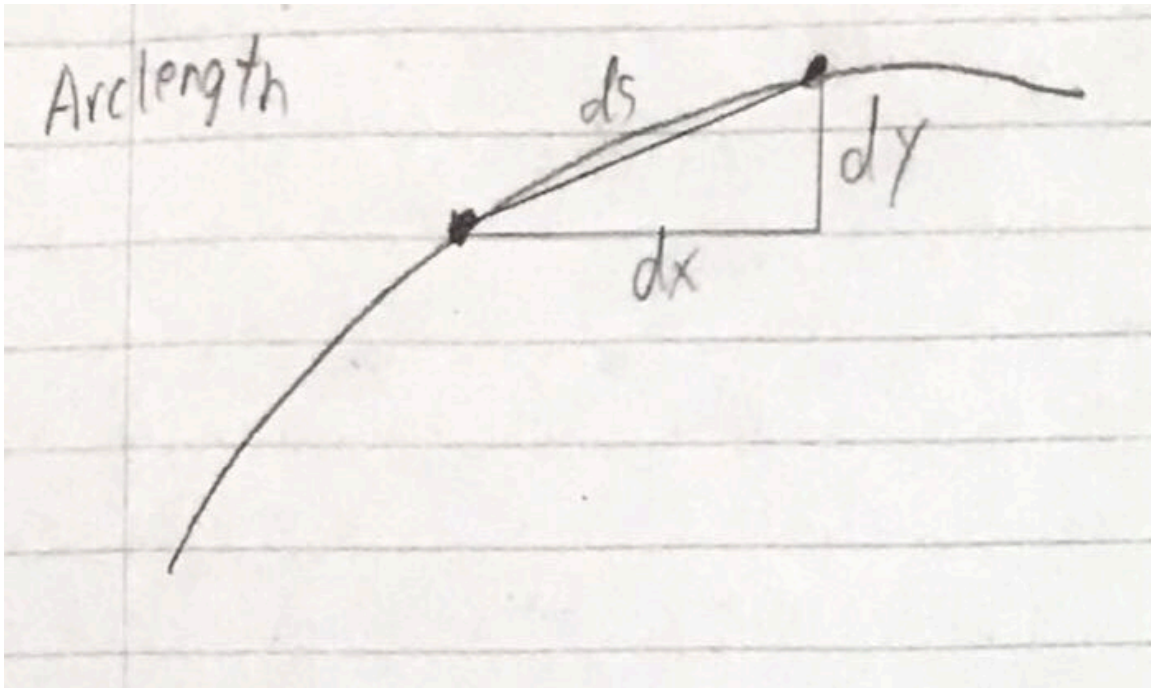 Arclength
ds
dy
dx